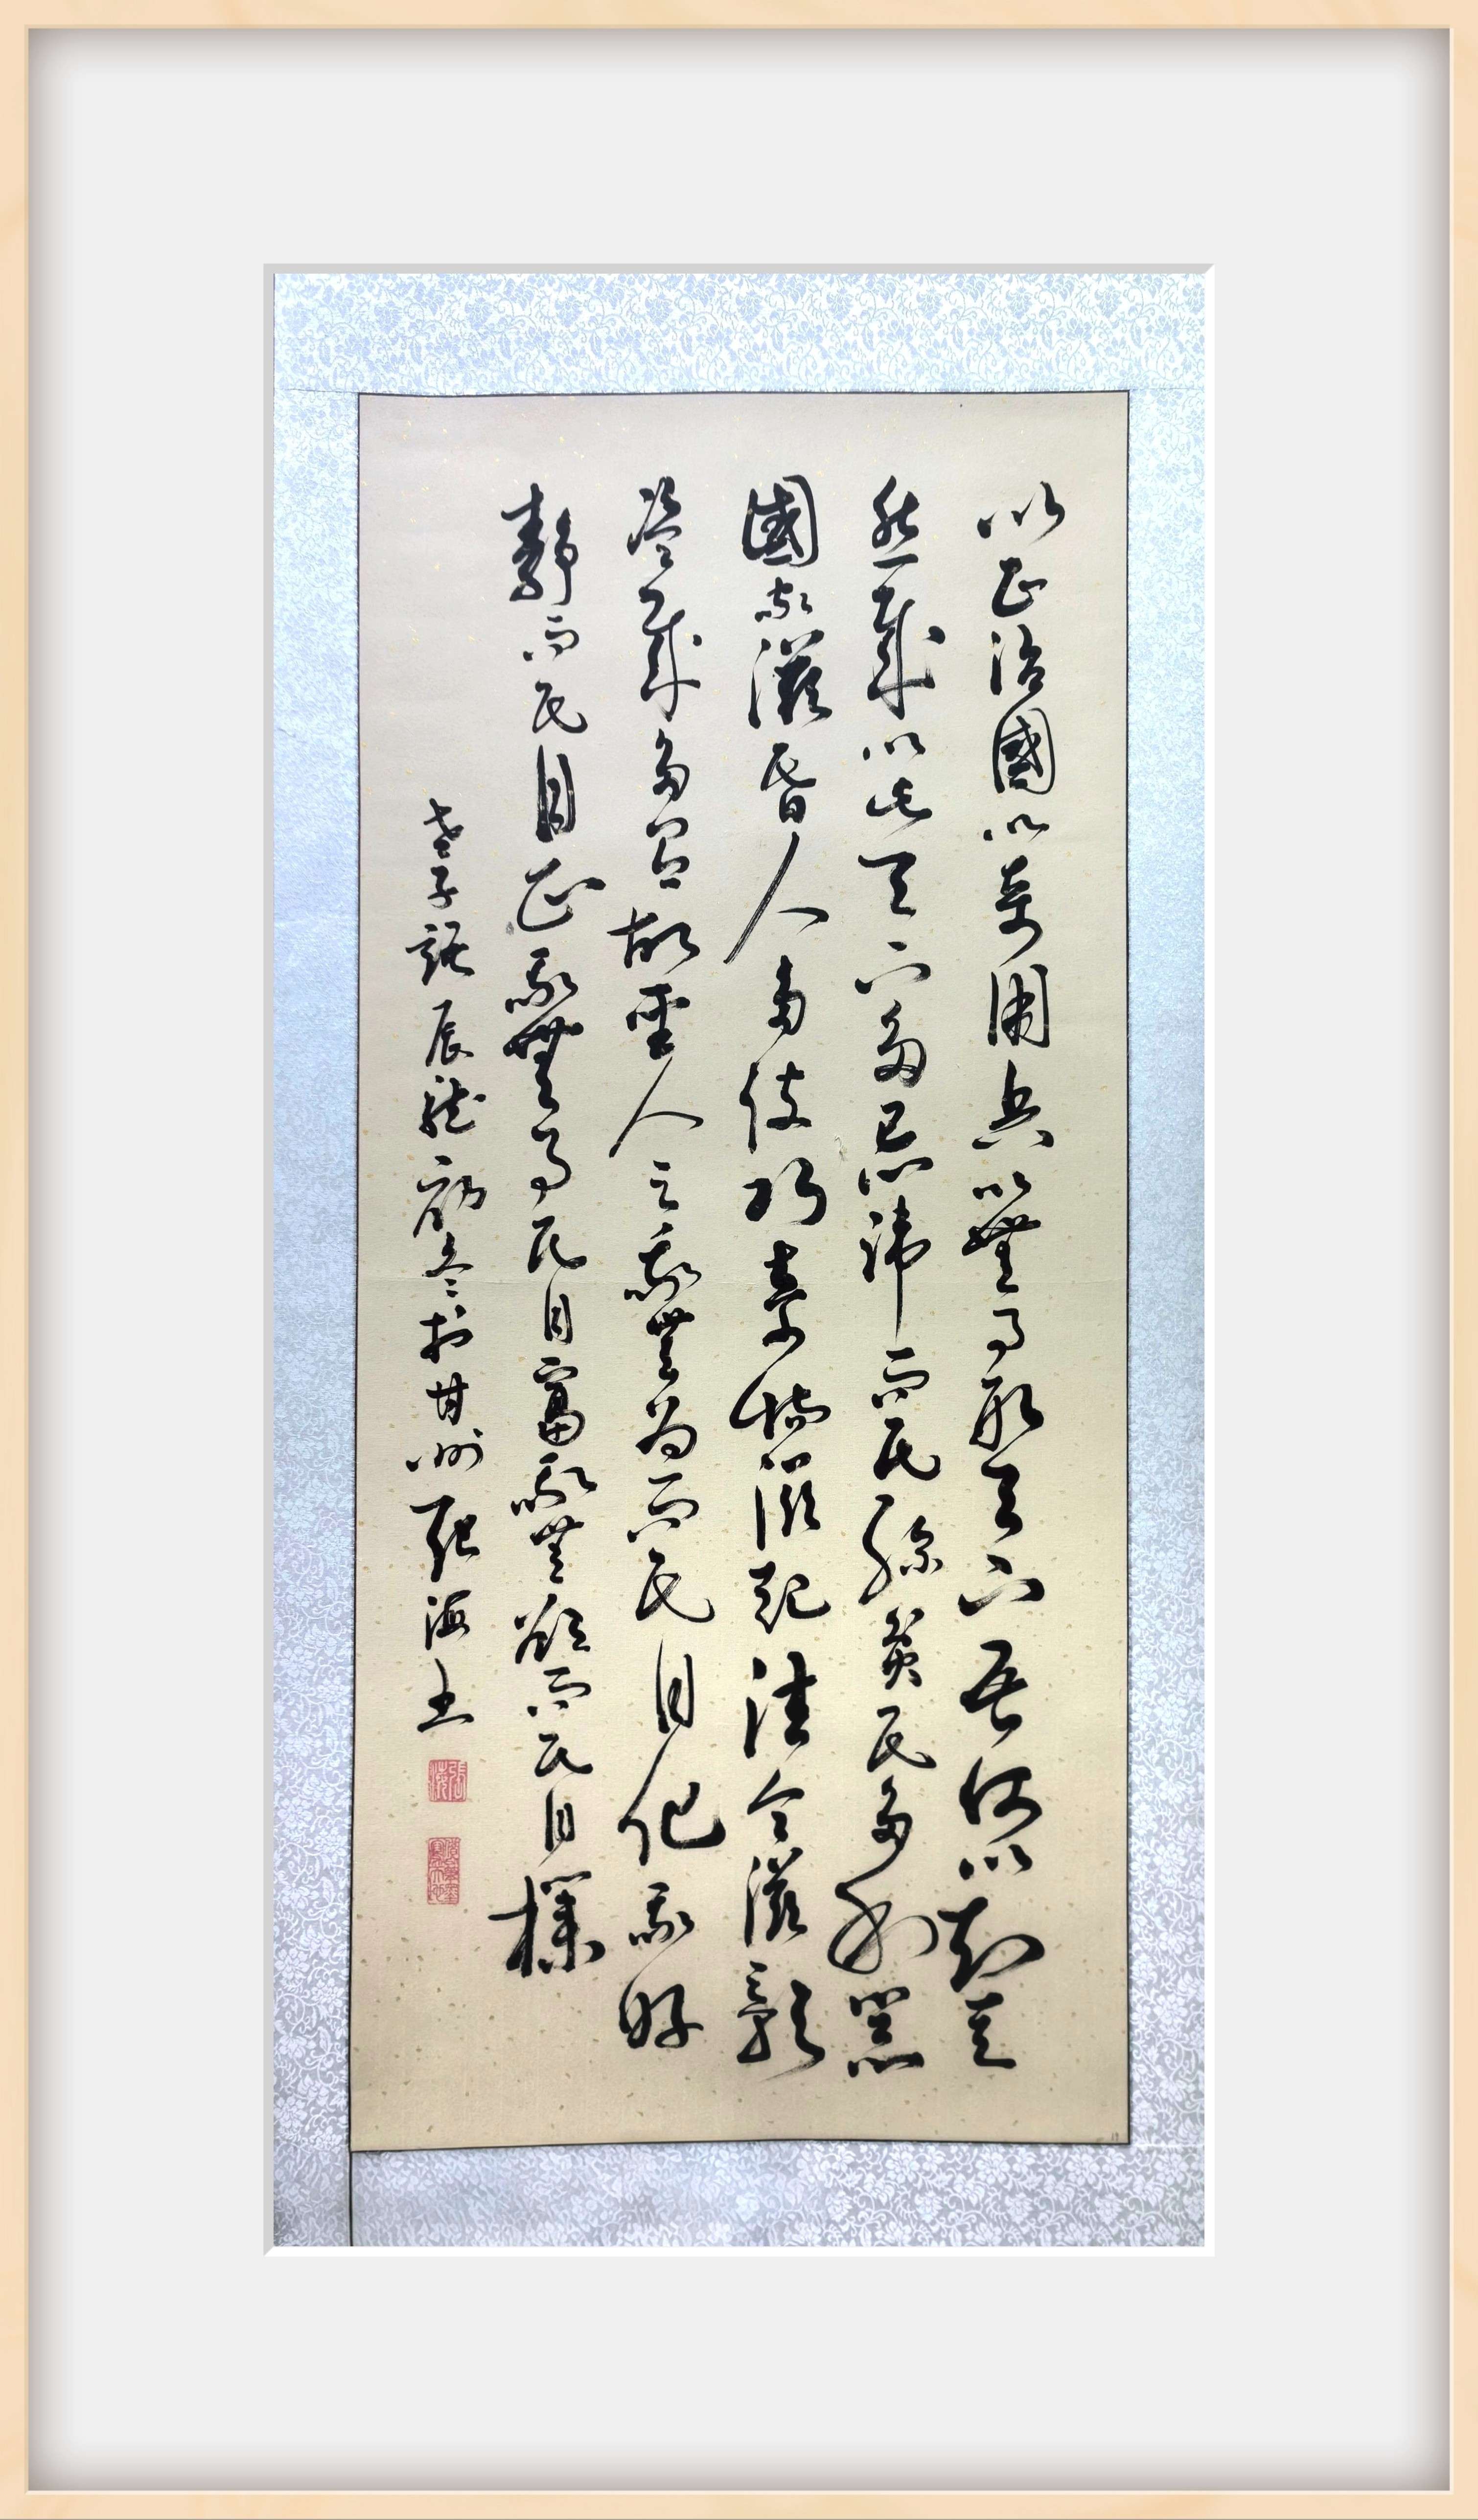 以正治國以奇用兵以無事取天下吾何以知其
然哉以此天下多忌諱而民彌貧民多利器
國家滋昏人多伎巧奇物滋起法令滋彰
盜賊多有故聖人云我無為而民自化我好
靜而民自正我無事民自富我無欲而民自樸
老子語辰龍初冬於甘州張海